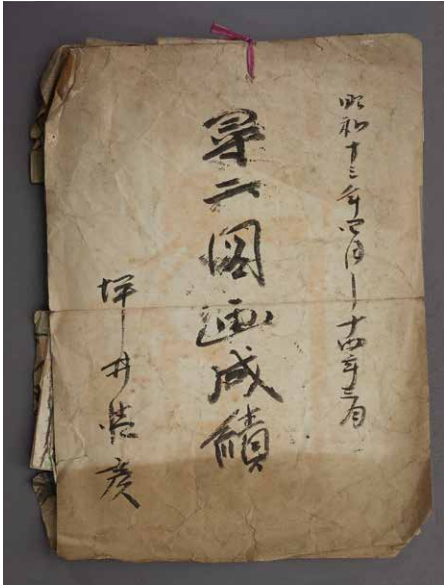 昭和十三年四月ー十四年三月
第二圖画成績
坪井